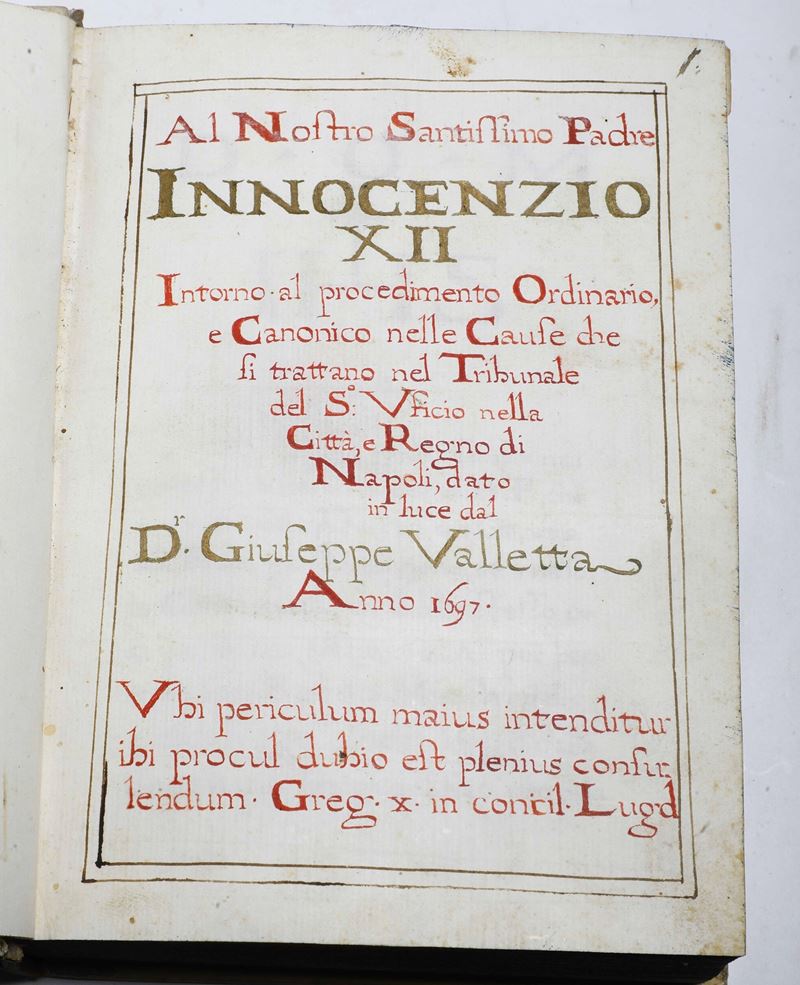 Al Noſtro Santiſſimo Padre
INNOCENZIO
XII
Intorno·al procedimento Ordinario,
e Canonico nelle Cauſe che
ſi trattano nel Tribunale
del S.º: Vficio nella
Città, e Regno di
Napoli, dato
in luce dal
D.r Giuſeppe Valletta
Anno 1697.
Vbi periculum maius intenditur
ibi procul dubio eſt plenius conſu:
lendum· Greg· x· in concil· Lugd